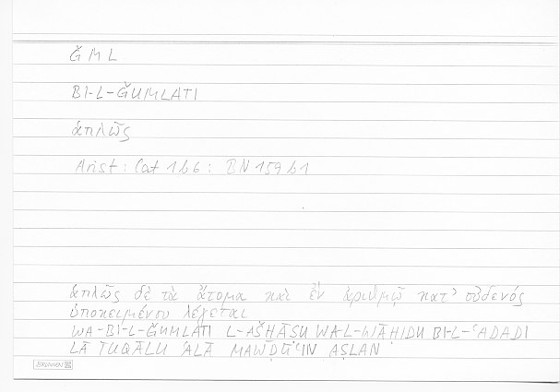 ǦML
BI-L-ǦUMLATI
ἁπλῶς
Arist: Cat 1b6: BN 159b1
ἁπλῶς δὲ τὰ ἄτομα καὶ ἓν ἀριθμῷ κατ' οὐδενός
ὑποκειμένου λέγεται
WA-BI-L-ǦUMLATI L-AŠḪĀṢU WA-L-WĀḤIDU BI-L-ʿADADI
LĀ TUQĀLU ʿALĀ MAWḌŪʿIN AṢLAN